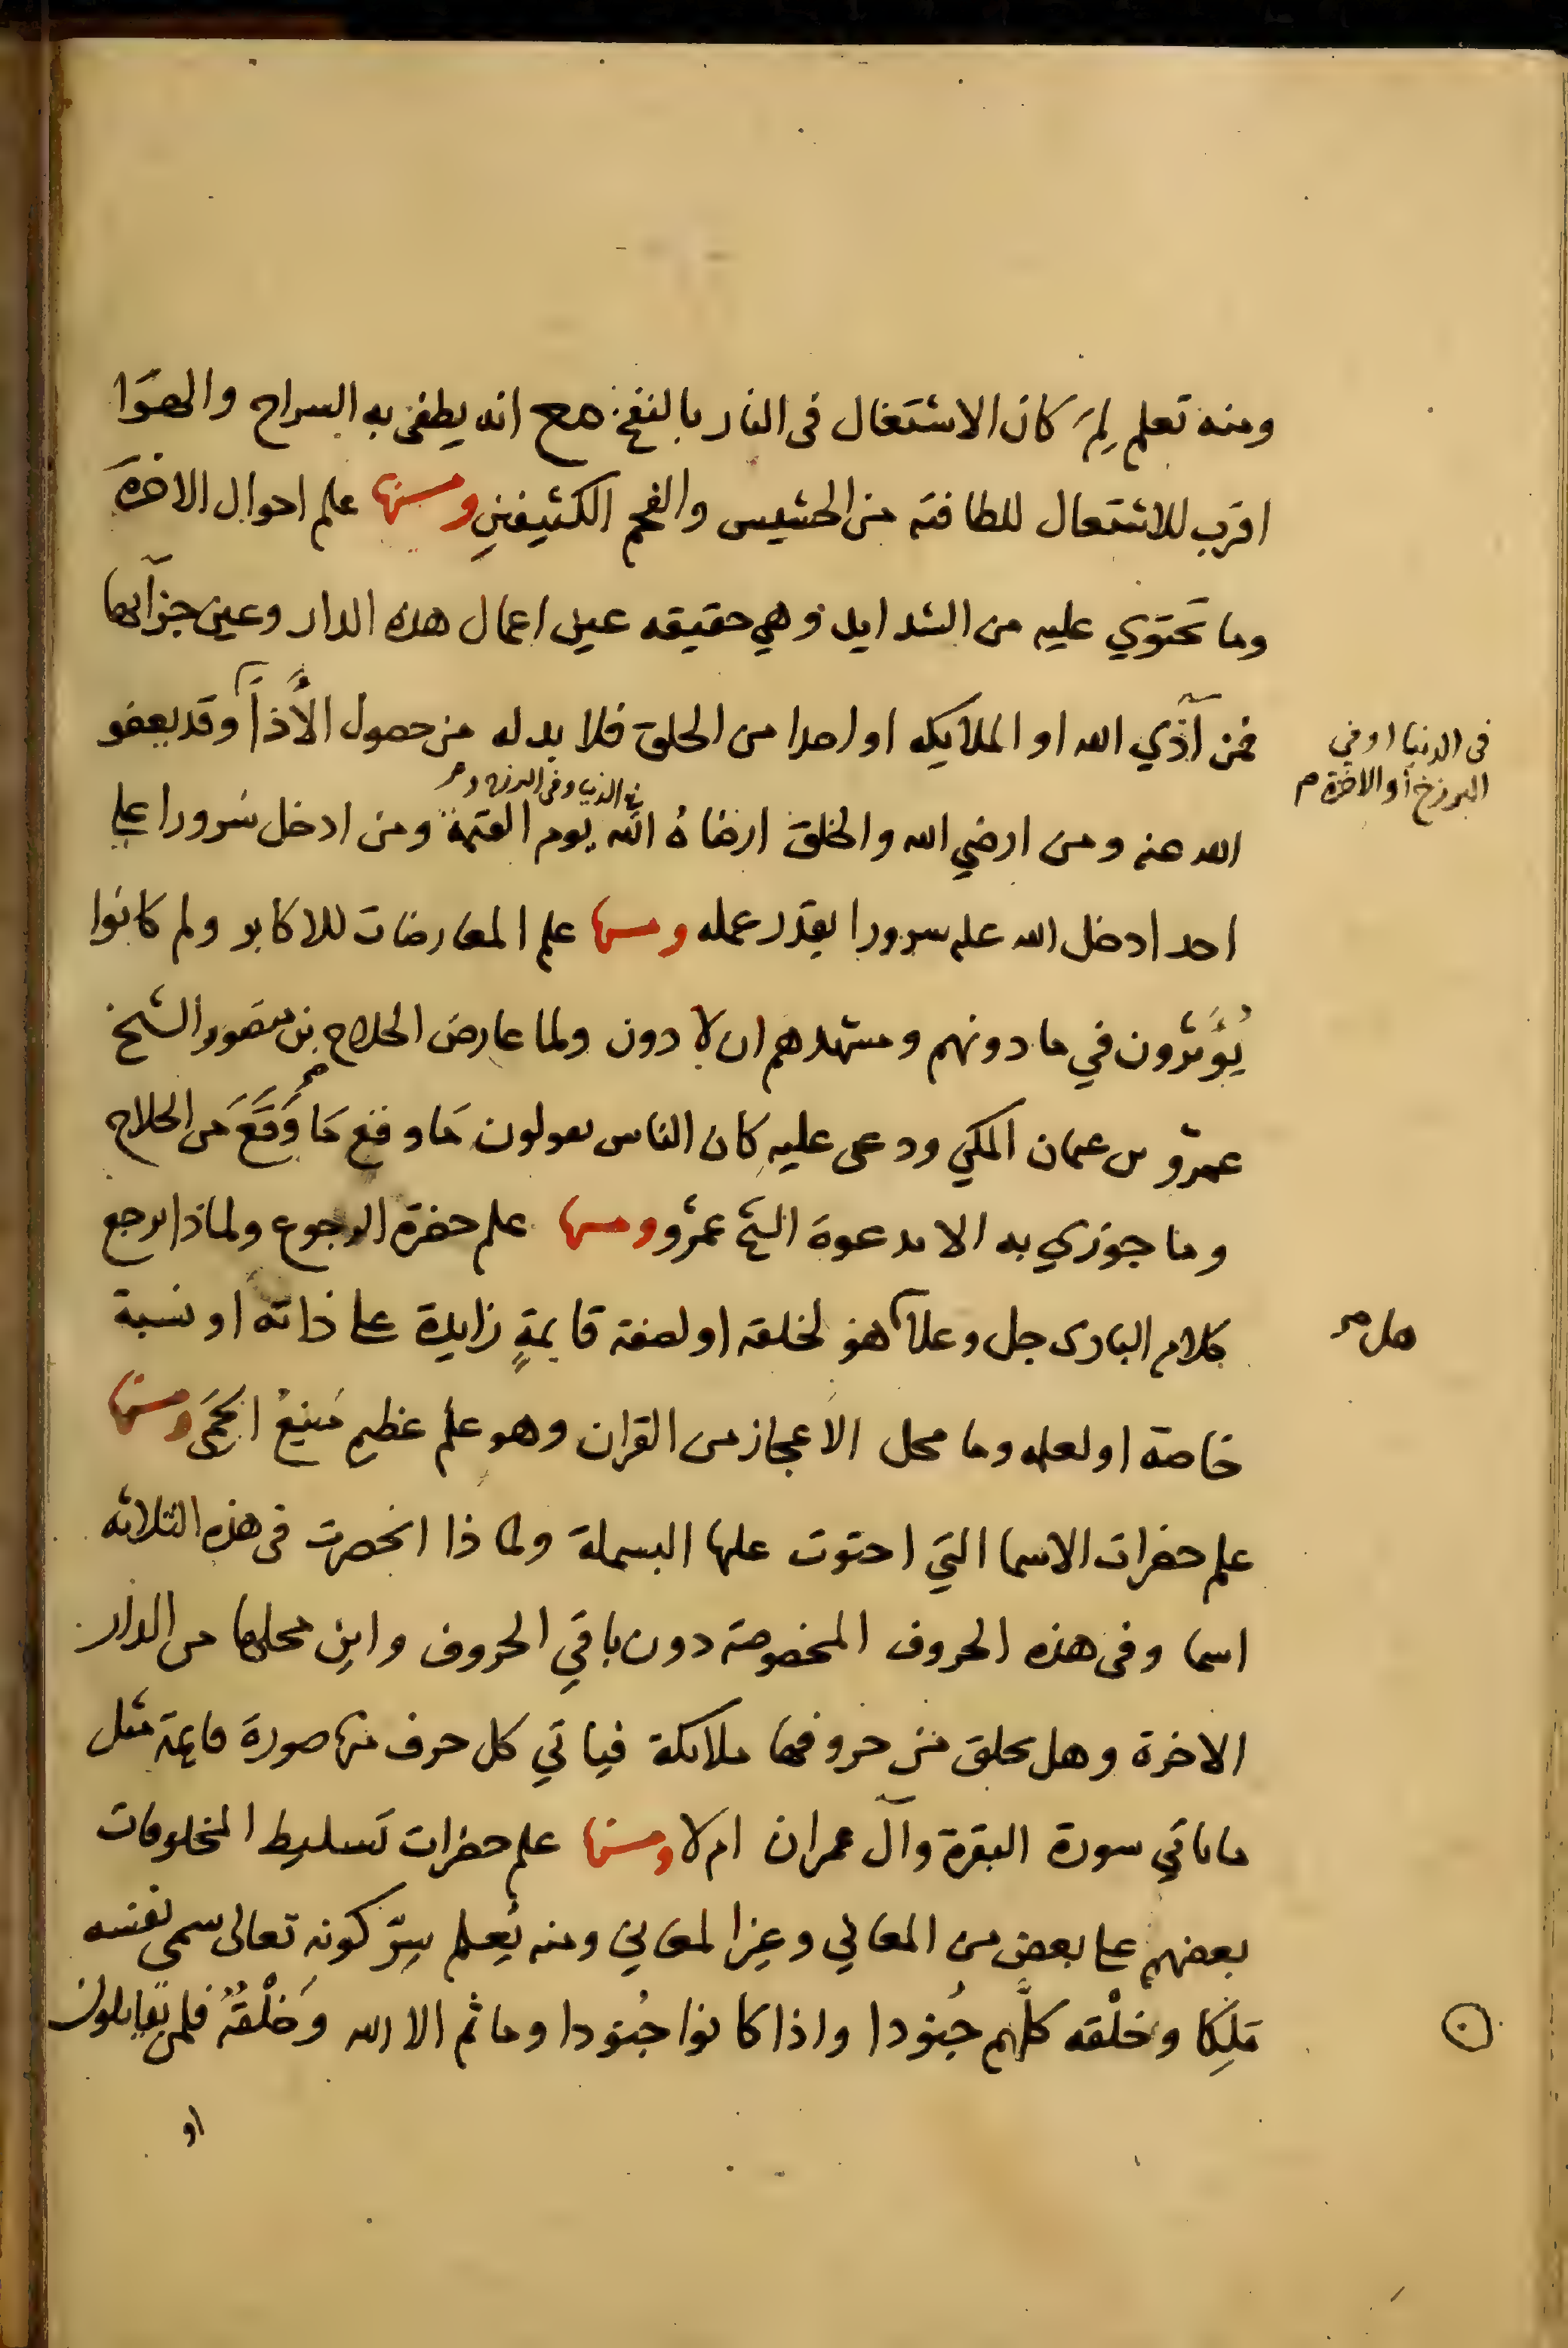 ومنه تعلم لِمَ كان الاشتغال فى النار بالنفخ مع انه يطفى به السراج والهوَا
اقرب للاشتعال للطافته من الحشيس والفحم الكثيفينِ ومنها علم احوال الاخرة
وما تحتوي عليه من الشدايد وهي حقيقه عين اعمال هذه الدار وعين جزآلها
فمن آذي الله او الملايكه او احدا من الخلق فلا بد له من حصول الأذاَ وقد يعفو
فى الدنيا او في
البرزخ او الاخرة م
الله عنه ومن ارضي الله والخلق ارضاهُ الله يوم القيمة ومن ادخل سرورا على
فى الدنيا وفى البرزخ و
احد ادخل الله عليه سرورا بقدر عمله ومنها علم المعارضات للاكابر ولم كانوا
يُؤثرون في ما دونهم ومشهدهم ان لا دون ولما عارض الحلاج بن منصور الشيخ
عمرو بن عثمان المكي ودعى عليه كان الناس يقولون مَا وقع مَا وَقَعَ من الحلاج
وما جوزي به الا بدعوة الشيخ عمرو ومنها علم حضرة الرجوع ولماذا يرجع
كلام البارى جل وعلا هو لخلقه او لصفة قايمةٍ زايدة على ذاته او نسبة
هل
خاصة او لعلمه وما محل الاعجاز من القران وهو علم عظيم مَنيعُ الحِمَى ومنها
علم حضرات الاسما التي احتوت عليها البسملة ولماذا انحصرت فى هذه الثلاثه
اسما وفى هذه الحروف المخصوصة دون باقي الحروف واين محلها من الدار
الاخرة وهل يخلق من حروفها ملائكة فياتي كل حرف منها صورة قايمة مثل
ما ياتي سورة البقرة وآل عمران ام لا ومنها علم حضرات تسليط المخلوقات
بعضهم على بعض من المعاني وغير المعاني ومنه يُعلم سِرّ كونه تعالى سمى نفسه
مَلِكا وخلْقه كلَّهم جُنودا واذا كانوا جُنودا وما ثم الا الله وَخلْقهُ فلمن يقابلون
او